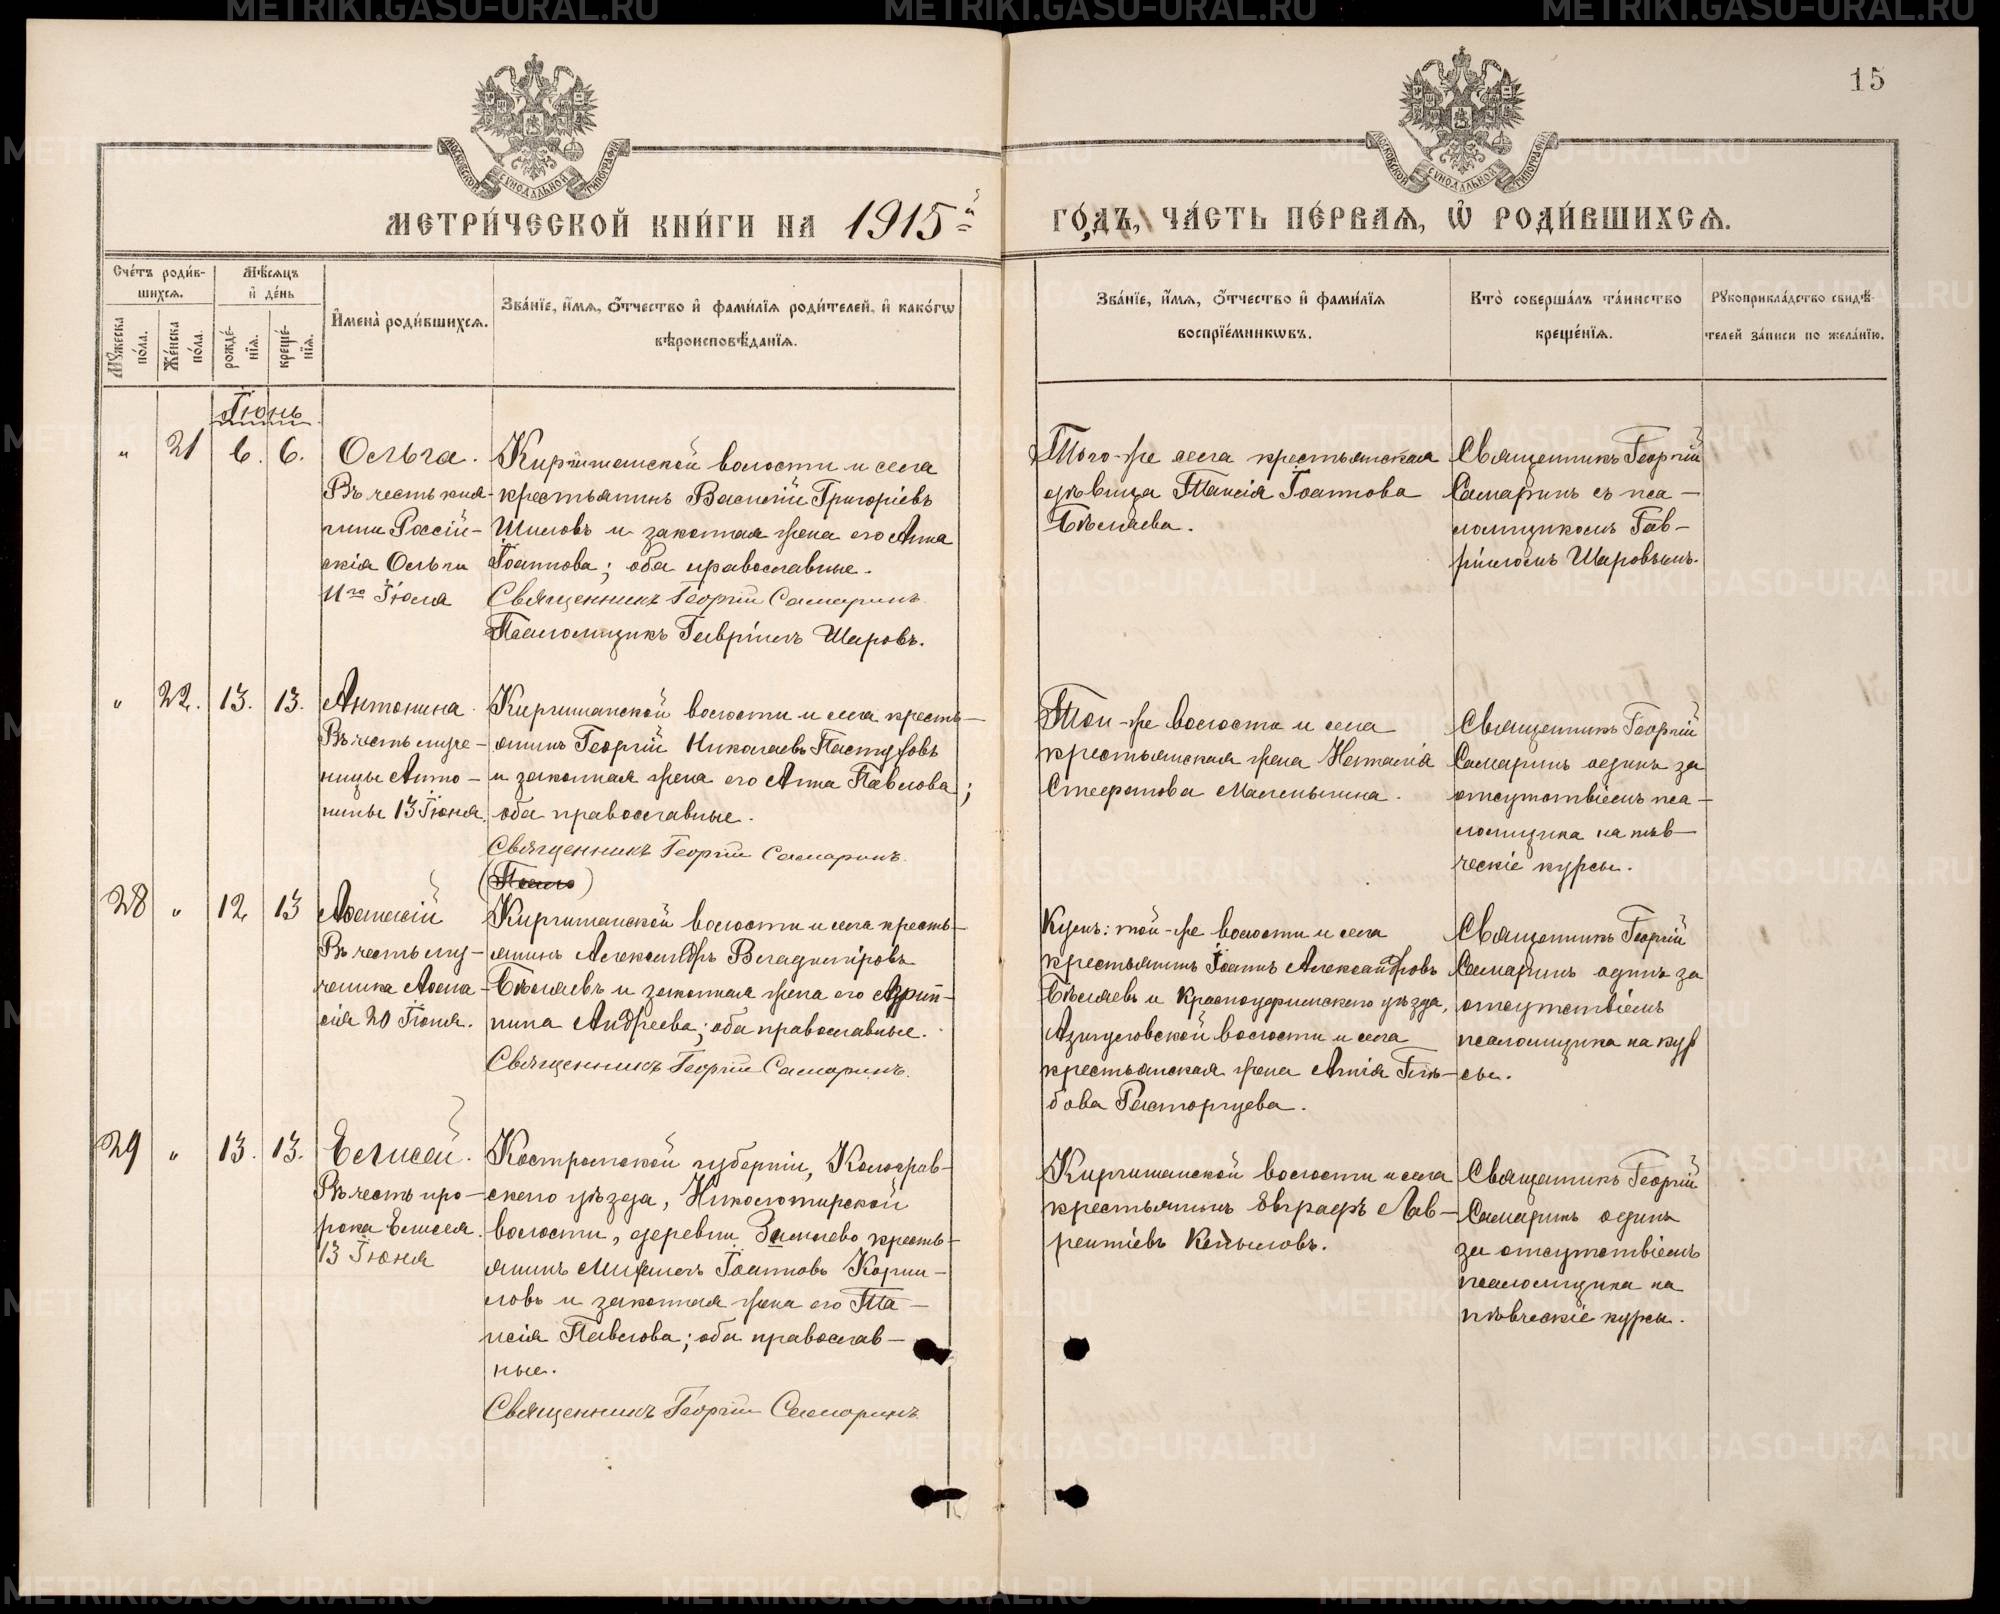 15
МЕТРИ́ЧЕСКОЙ КНИ́ГИ НА 1915й ГО́ДЪ, ЧА́СТЬ ПЕ́РВАЯ, Ѡ҆ РОДИ́ВШИХСЯ.
МОСКОВСКОЙ СѴНОДАЛЬНОЙ ТИПОГРАФІИ
МОСКОВСКОЙ СѴНОДАЛЬНОЙ ТИПОГРАФІИ
Сче́тъ роди́в-
шихся.
Мꙋ́жеска
по́ла.
Же́нска
по́ла.
Мѣ́сяцъ
и҆ де́нь
рожде́-
нїя.
креще́-
нїя.
И҆мена̀ роди́вшихся.
Зва́нїе, и҆́мя, ѻ҆́тчество и҆ фами́лїя роди́телей, и҆ како́гѡ
вѣроисповѣ́данїя.
Зва́нїе, и҆́мя, ѻ҆́тчество и҆ фами́лїя
воспрїе́мникѡвъ.
Кто̀ соверша́лъ та́инство
креще́нїя.
Рꙋкоприкла́дство свидѣ́-
телей за́писи по жела́нїю.
Іюнь
„ 21 6. 6.
Ольга.
Въ честь кня-
гини Россій-
скія Ольги
11го Іюля
Киргишанской волости и села
крестьянинъ Василій Григоріевъ
Шиловъ и законная жена его Анна
Іоаннова; оба православные.
Священникъ Георгій Самаринъ
Псаломщикъ Гавріилъ Шаровъ.
Того-же села крестьянская
дѣвица Таисія Іоаннова
Бѣляева.
Священникъ Георгій
Самаринъ съ пса-
ломщикомъ Гав-
ріиломъ Шаровымъ.
„ 22. 13. 13.
Антонина
Въ честь муче-
ницы Анто-
нины 13 Іюня.
Киргишанской волости и села кресть-
янинъ Георгій Николаевъ Пастуховъ
и законная жена его Анна Павлова;
оба православные.
Священникъ Георгій Самаринъ.
(Псало)
Той-же волости и села
крестьянская жена Наталія
Стефанова Малиныхина.
Священникъ Георгій
Самаринъ одинъ за
отсутствіемъ пса-
ломщика на пѣв-
ческіе курсы.
28 „ 12 13
Аѳанасій
Въ честь му-
ченика Аѳана-
сія 20 Іюня.
Киргишанской волости и села кресть-
янинъ Александръ Владиміровъ
Бѣляевъ и законная жена его Агрип-
пина Андреева; оба православные.
Священникъ Георгій Самаринъ.
Кумъ: той-же волости и села
крестьянинъ Іоаннъ Александровъ
Бѣляевъ и Красноуфимскаго уѣзда,
Азигуловской волости и села
крестьянская жена Анна Глѣ-
бова Расторгуева.
Священникъ Георгій
Самаринъ одинъ за
отсутствіемъ
псаломщика на кур
сы.
29 „ 13. 13.
Елисей.
Въ честь про-
рока Елисея.
13 Іюня
Костромской губерніи, Кологрив-
скаго уѣзда, Николошрской
волости, деревни Зинаево кресть-
янинъ Михаилъ Іоанновъ Корни-
ловъ и законная жена его Та-
исія Павлова; оба православ-
ные.
Священникъ Георгій Самаринъ
Киргишанской волости и села
крестьянинъ Евграфъ Лав-
рентіевъ Копыловъ.
Священникъ Георгій
Самаринъ одинъ
за отсутствіемъ
псаломщика на
пѣвческіе курсы.
METRIKI.GASO-URAL.RU